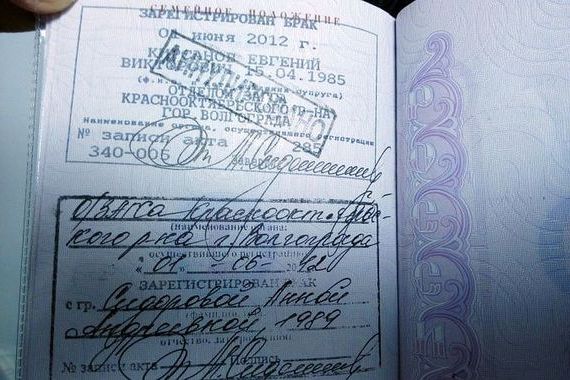 СЕМЕЙНОЕ ПОЛОЖЕНИЕ
ЗАРЕГИСТРИРОВАН БРАК
01 июня 2012 г.
ЕВГЕНИЙ
15.04.1985
ОТДЕЛОМ
КРАСНООКТЯБРЬСКОГО Р-НА
ГОР. ВОЛГОГРАДА
наименование органа, осуществившего регистрацию
№ записи акта 285
340-006
О/ЗАГСа Краснооктябрьс-
кого р-на г. Волгограда
(наименование органа,
осуществившего регистрацию)
" 01 " - 06 - 2012
ЗАРЕГИСТРИРОВАН БРАК
с гр. Сидоровой Анной
Андреевной, 1989
отчество, дата рожд.
№ записи акта Подпись